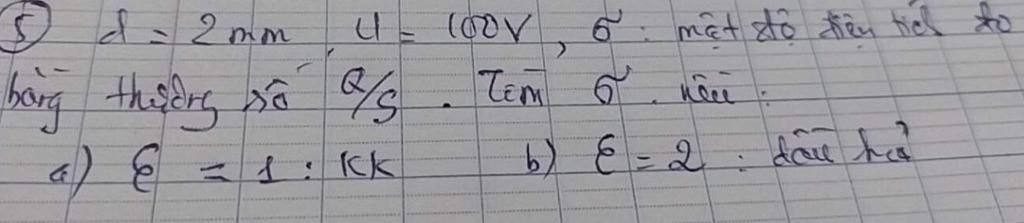 ⑤ d = 2mm, U = 100V, σ : mật độ điện tích đo
bằng thương số Q/S. Tìm σ. nếu :
a) ε = 1 : KK b) ε = 2 : dầu hoả